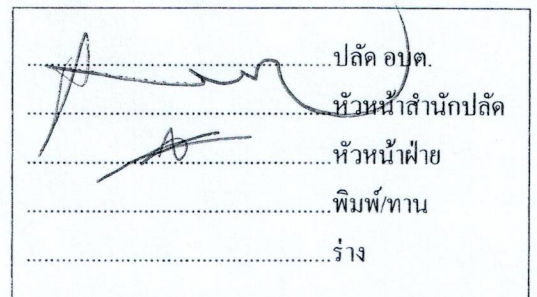 ..............................ปลัด อบต.
..............................หัวหน้าสำนักปลัด
..............................หัวหน้าฝ่าย
..............................พิมพ์/ทาน
..............................ร่าง